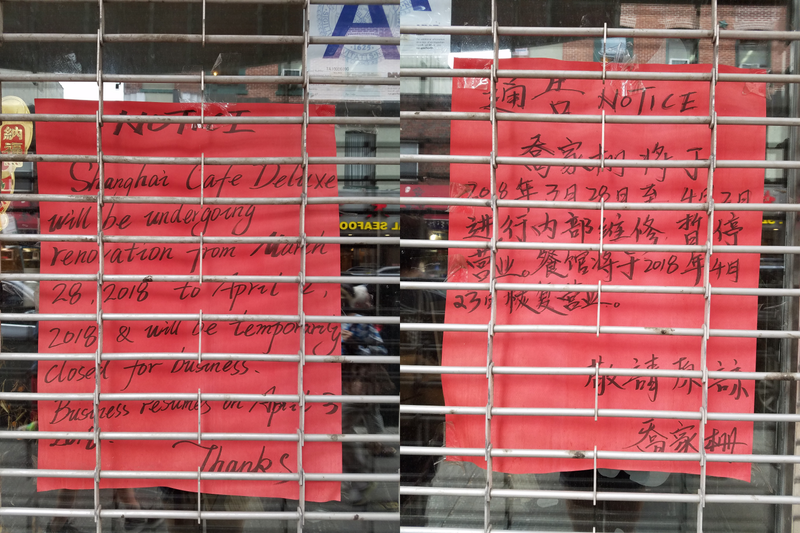 NOTICE
Shanghai Cafe Deluxe
will be undergoing
renovation from March
28, 2018 to April 2,
2018 & will be temporarily
closed for business.
Business resumes on April
Thanks
A
納
SEAFOO
通告 NOTICE
喬家栅将于
2018年3月28日至 4月2日
进行内部维修, 暂停
营业。餐馆将于2018年4月
恢复营业。
敬請原諒
喬家栅